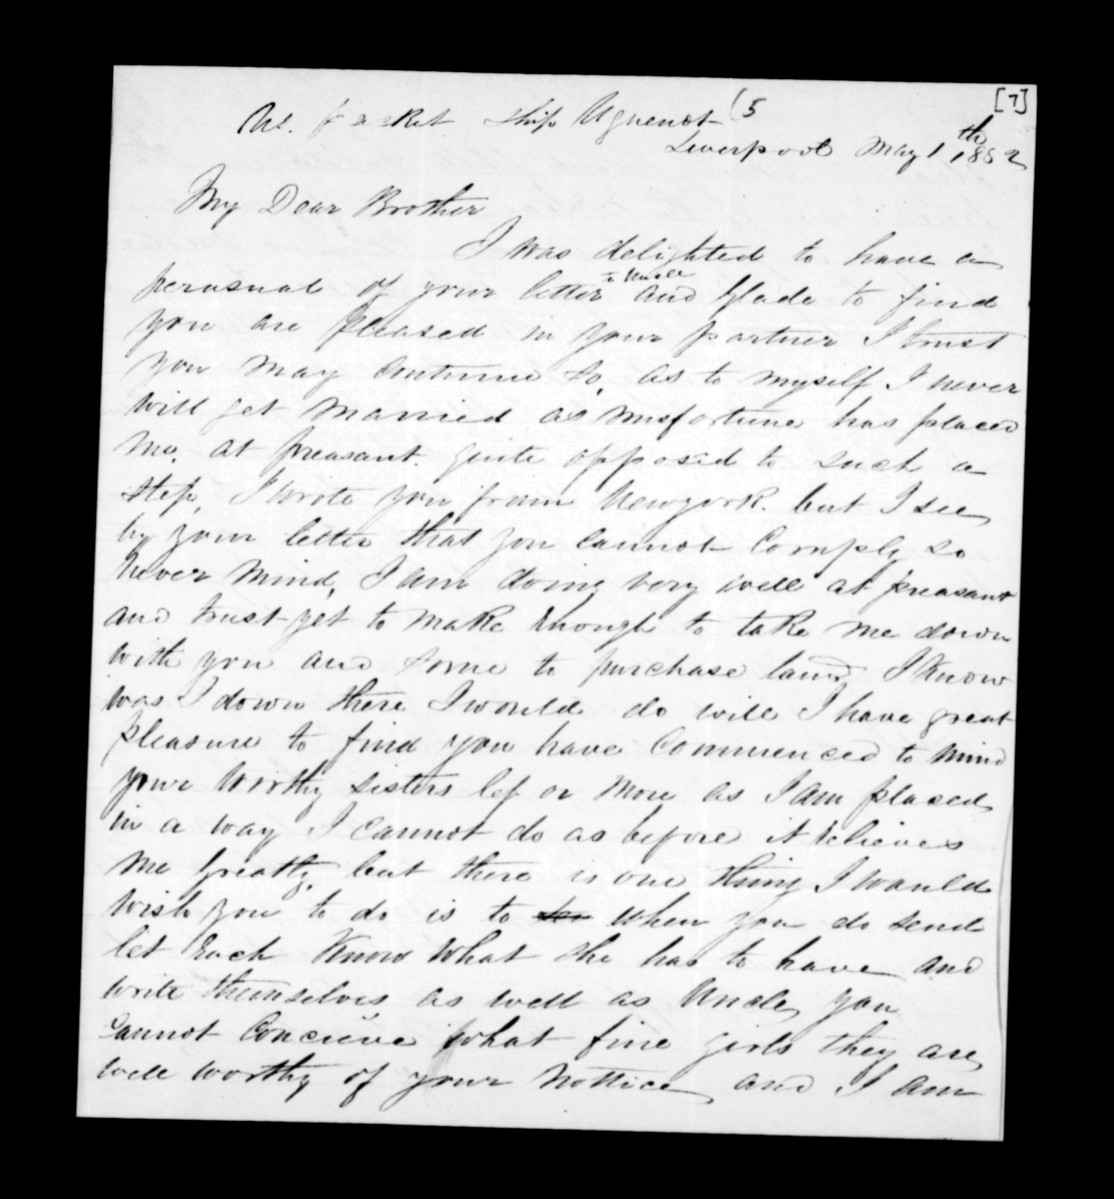 [7]
(5
Ul. Packet Ship Uguenot
Liverpool May 1th 1852
My Dear Brother
I was delighted to have a
perusual of your letter to Uncle and Glade to find
you are pleased in your partner I trust
you may continue so, as to myself I never
will get married as misfortune has placed
me. at preasant. quite opposed to such a
step, I wrote you from Newyork. but I see
by your letter that you cannot comply so
never mind, I am doing very well at preasant
and trust yet to make Enough to take me down
with you and some to purchase land, I Know
was I down there I would do well I have great
pleasure to find you have commenced to mind
your worthy sisters les or more as I am placed
in a way I cannot do as before it relieves
me greatly, but there is one thing I would
wish you to do is to when you do send
let Each Know what she has to have and
write themselves as well as Uncle, you
cannot concieve what fine girls they are
well worthy of your nottice, and I am